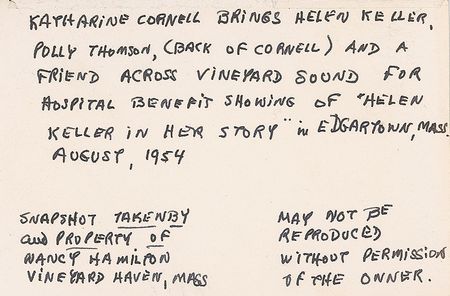 KATHARINE CORNELL BRINGS HELEN KELLER,
POLLY THOMSON, (BACK OF CORNELL) AND A
FRIEND ACROSS VINEYARD SOUND FOR
HOSPITAL BENEFIT SHOWING OF "HELEN
KELLER IN HER STORY" in EDGARTOWN, MASS.
AUGUST, 1954
SNAPSHOT TAKEN BY
and PROPERTY OF
NANCY HAMILTON
VINEYARD HAVEN, MASS
MAY NOT BE
REPRODUCED
WITHOUT PERMISSION
OF THE OWNER.